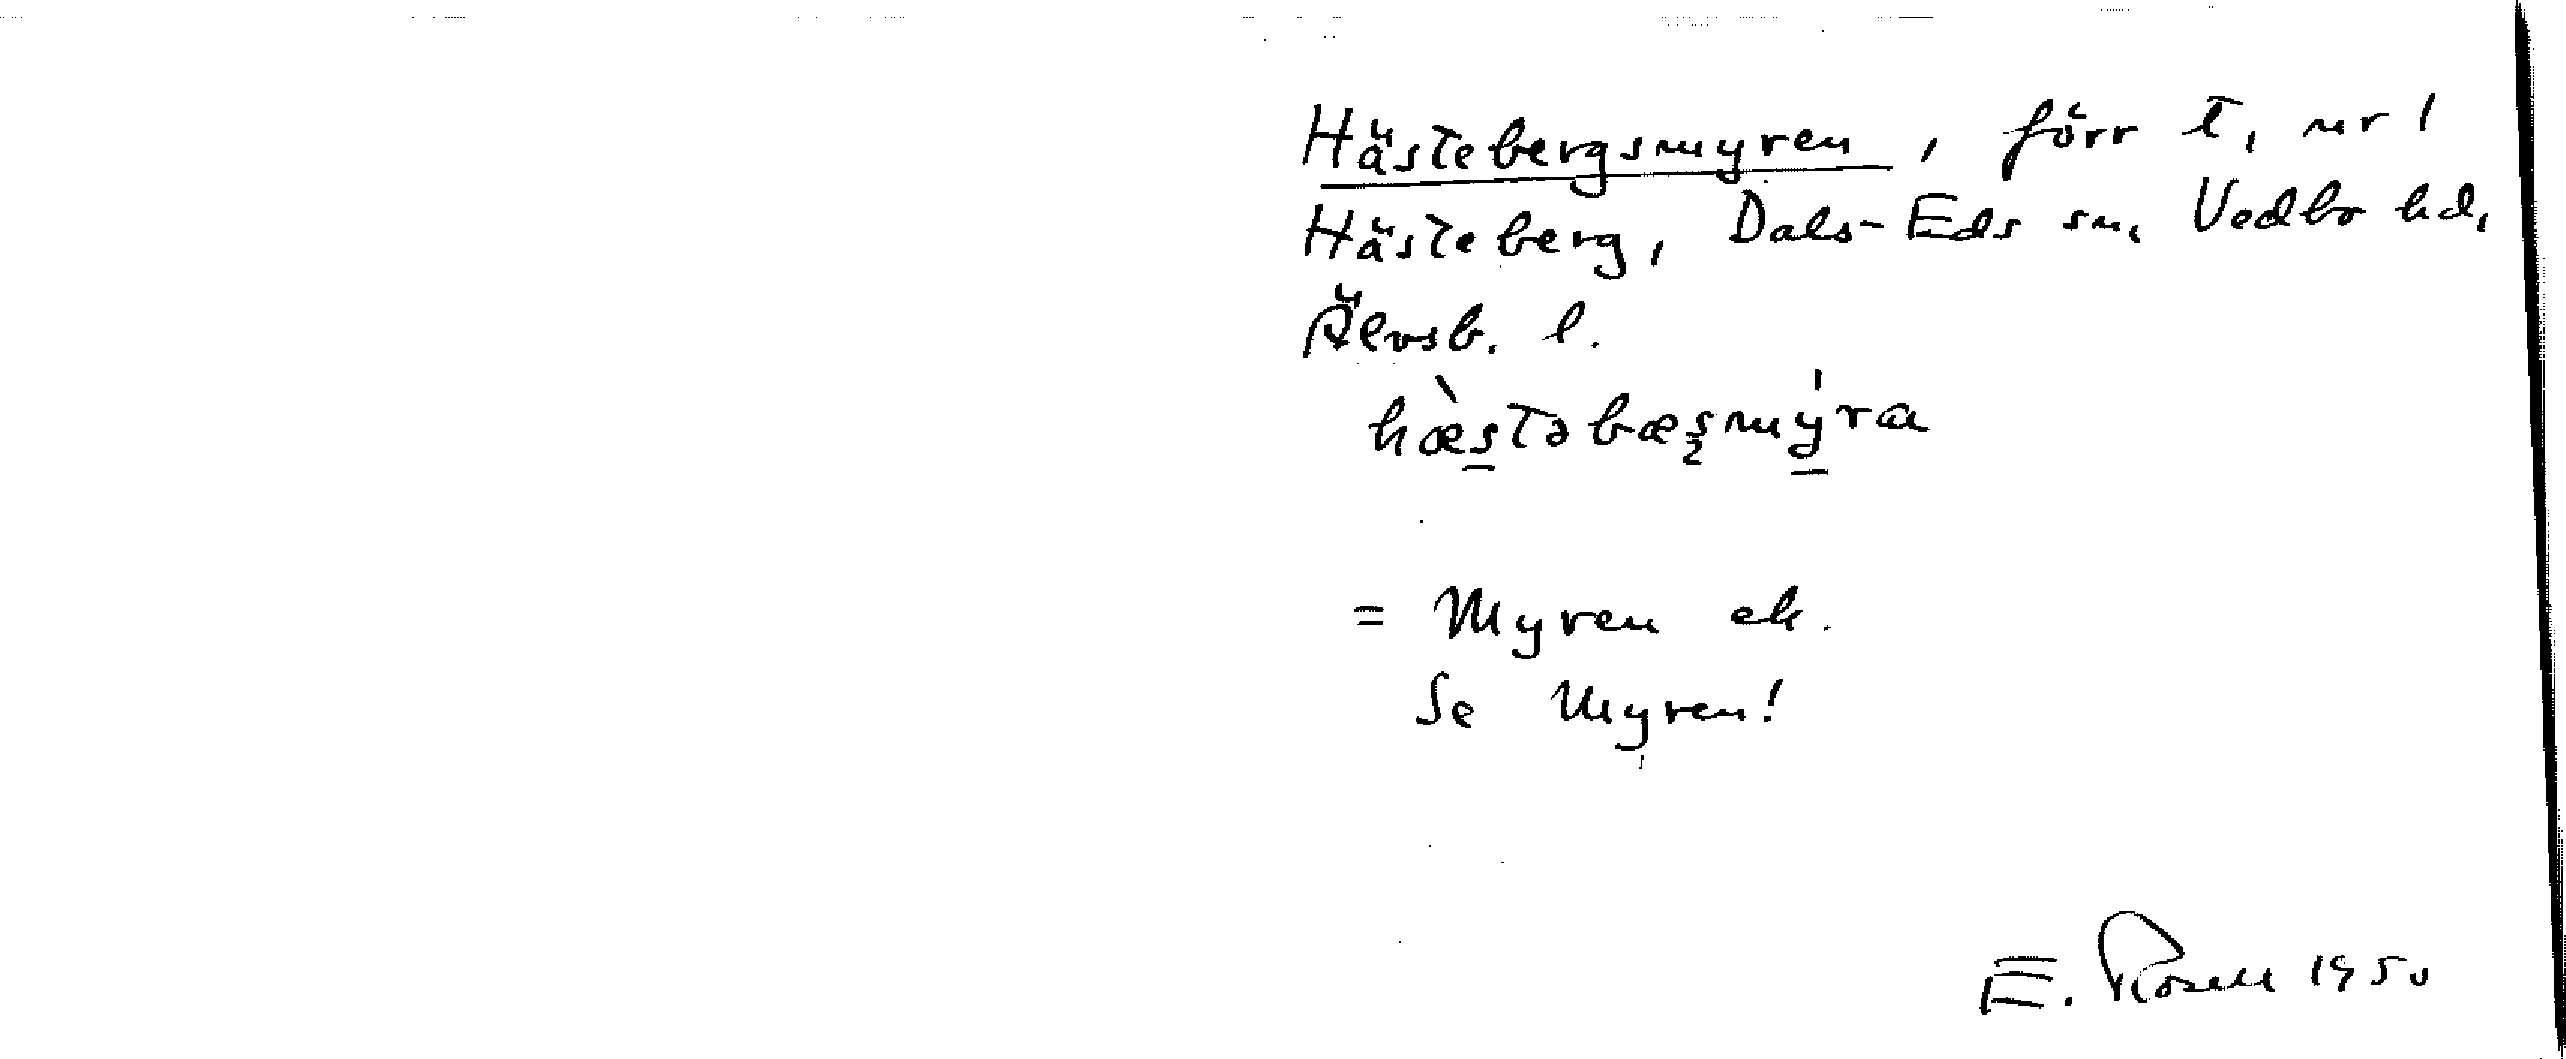 Hästebergsmyren, förr t, ur 1
Hästeberg, Dals-Eds sn, Vedbo hd,
Älvsb. l.
hæ̀s̠təbæşmý̠ra
= Myren ek.
Se Myren!
E. Rosell 1950